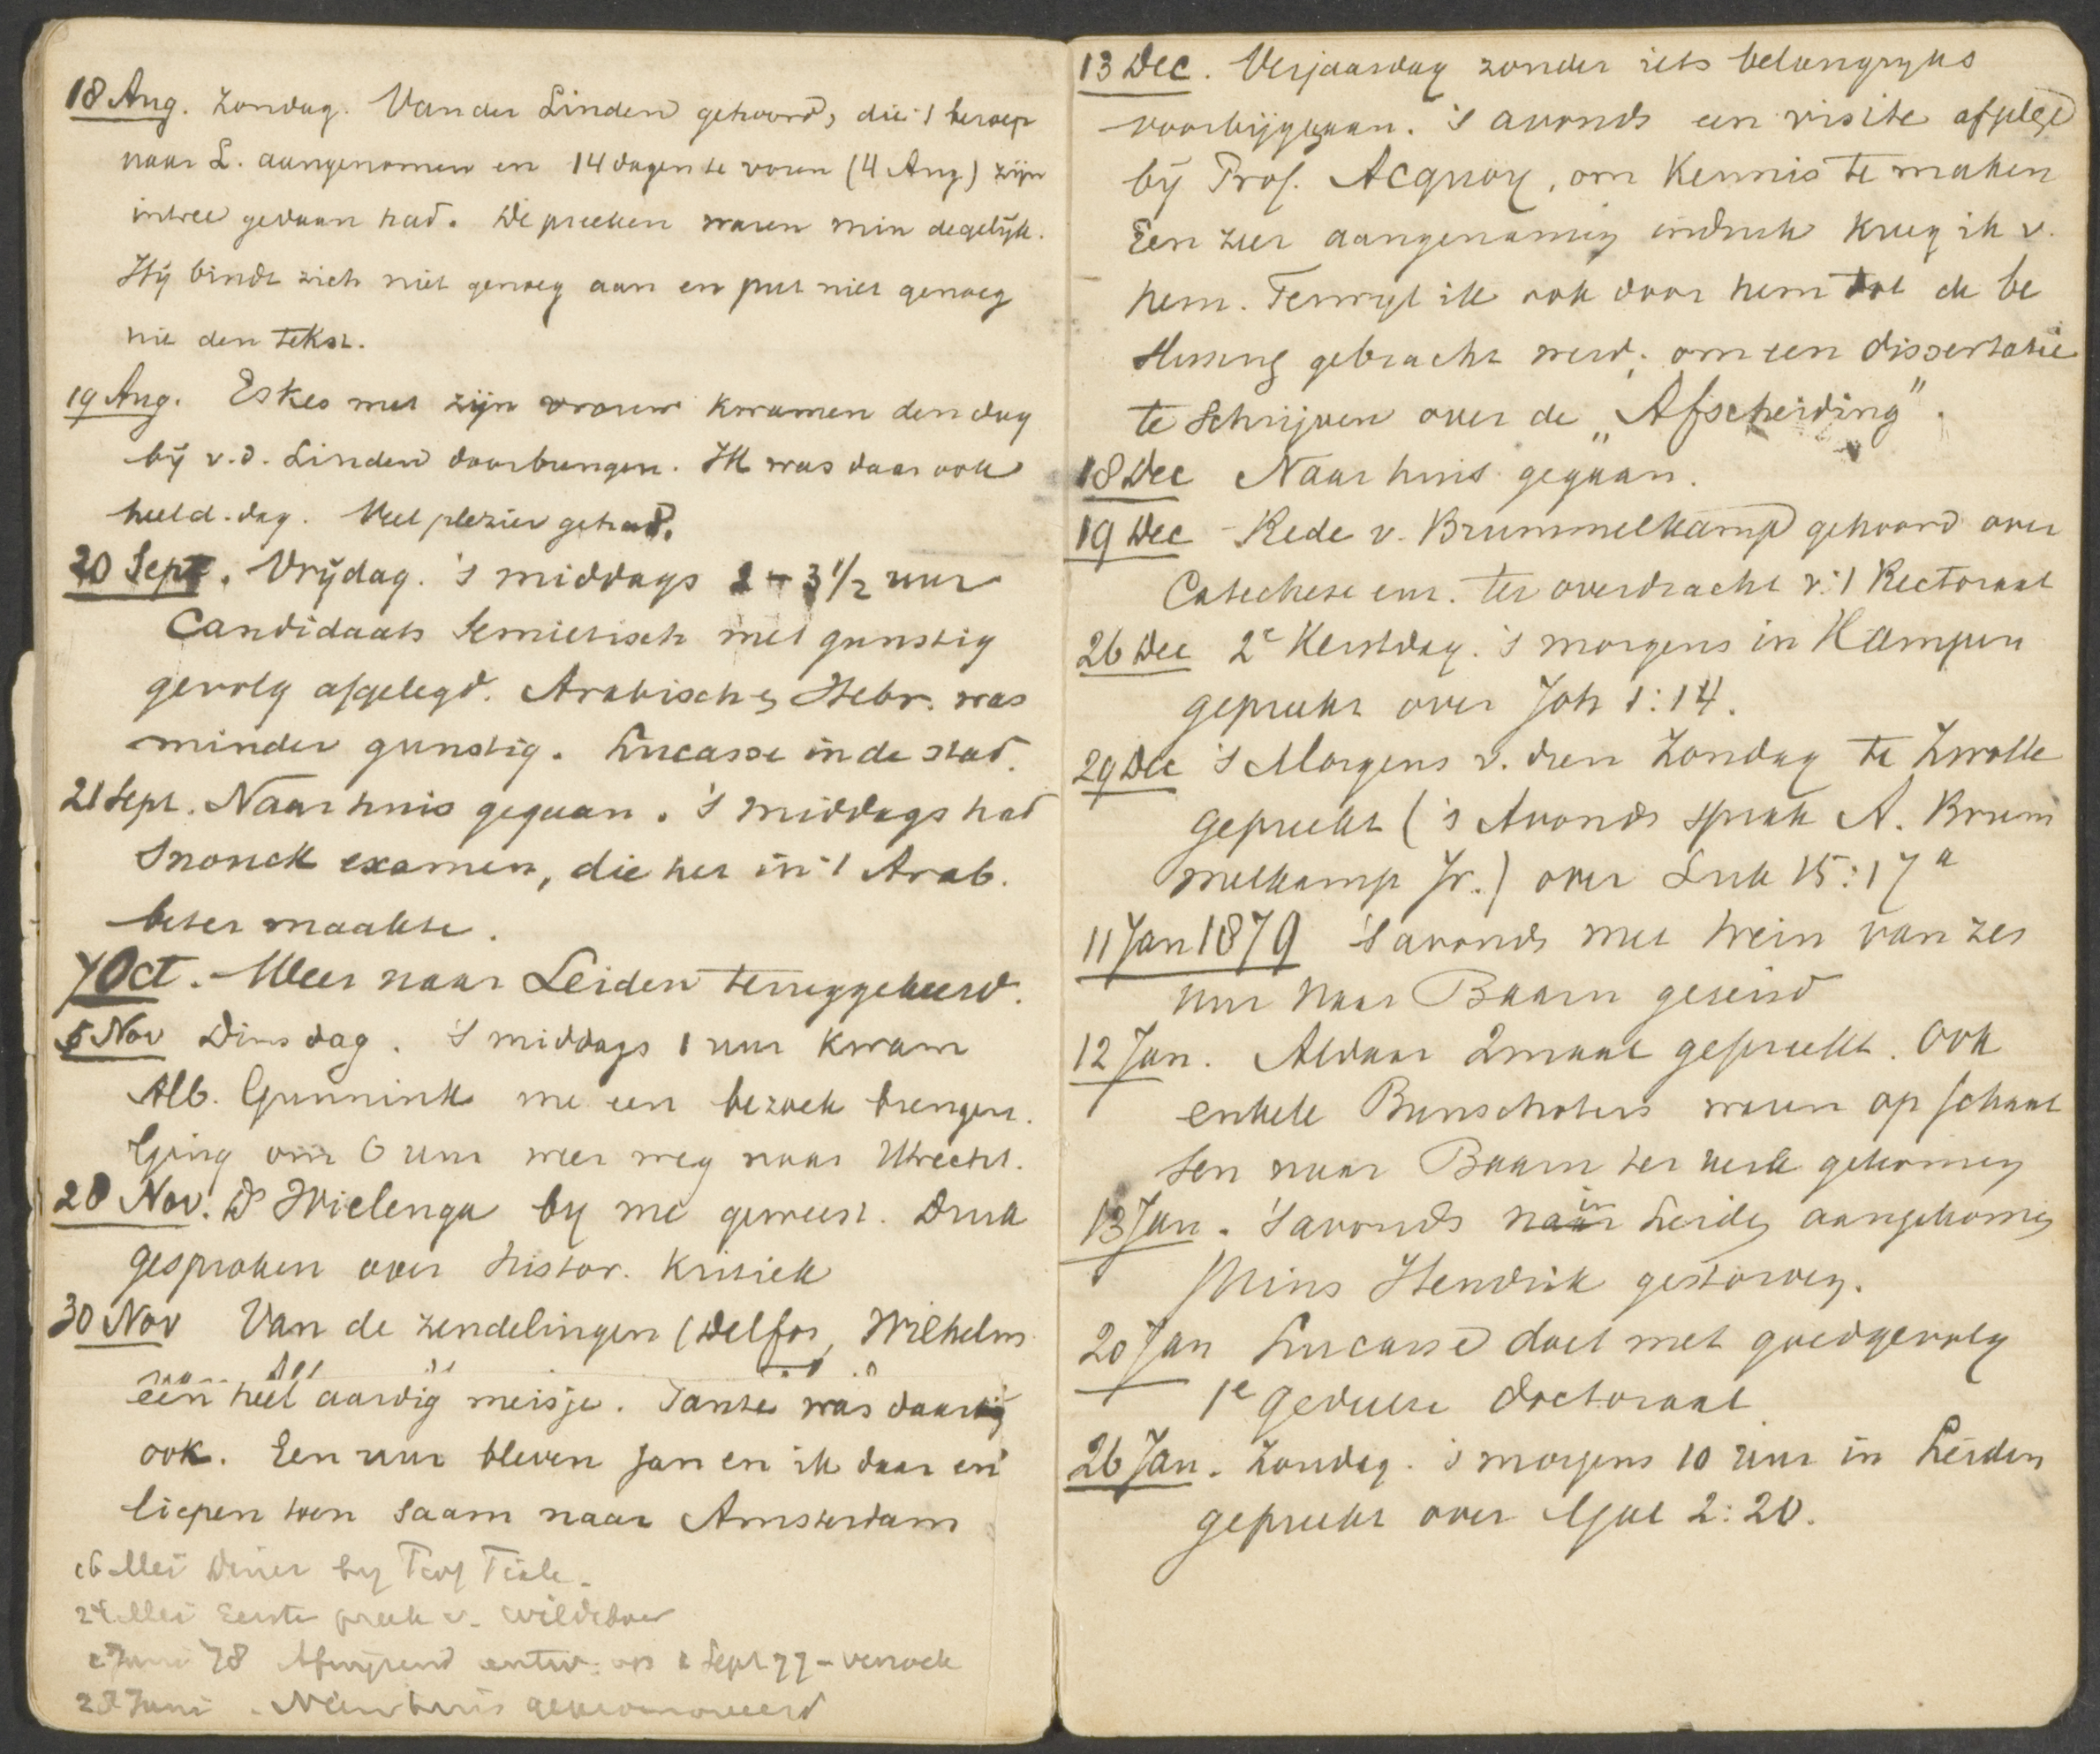 18 Aug. Zondag. Van der Linden gehoord, die 't beroep
naar L. aangenomen en 14 dagen te voren (4 Aug) zijn
intree gedaan had. De preeken waren min degelijk.
Hij bindt zich niet genoeg aan en put niet genoeg
uit den tekst.
19 Aug. Eskes met zijn vrouw kwamen den dag
bij v.d. Linden doorbrengen. Ik was daar ook
heel d. dag. Veel plezier gehad.
20 Sept. Vrijdag. 's middags 2-3 1/2 uur
Candidaats Semietisch met gunstig
gevolg afgelegd. Arabisch en Hebr. was
minder gunstig. Lucasse in de stad.
21 Sept. Naar huis gegaan. 's middags had
Snouck examen, die het in 't Arab.
beter maakte.
7 Oct. Weer naar Leiden teruggekeerd.
5 Nov Dinsdag. 's middags 1 uur kwam
Alb. Gunnink me een bezoek brengen.
Ging om 6 uur weer weg naar Utrecht.
28 Nov. Ds Wielenga by me geweest. Druk
gesproken over histor. kritiek
30 Nov Van de zendelingen (Delfos, Wilhelm
een heel aardig meisje. Tante was daar
ook. Een uur bleven Jan en ik daar en
liepen toen saam naar Amsterdam
16 Mei Diner by Prof Tiele.
24 Mei Eerste preek v. Wildeboer
Juni 78 Afwijzend antw. op Sept 77 - verzoek
Juni. Naar huis
13 Dec. Verjaardag zonder iets belangryks
voorbijgegaan. 's avonds een visite afgelegd
bij Prof. Acquoy, om kennis te maken
Een zeer aangenamen indruk kreeg ik v.
hem. Terwyl ik ook door hem tot de be
slissing gebracht werd, om een dissertatie
te schrijven over de „Afscheiding".
18 Dec Naar huis gegaan.
19 Dec Rede v. Brummelkamp gehoord over
Catechese enz. ter overdracht v. 't Rectoraat
26 Dec 2e Kerstdag. 's morgens in Kampen
gepreekt over Joh 1:14.
29 Dec 's Morgens v. dien Zondag te Zwolle
gepreekt ('s Avonds sprak A. Brum
melkamp Jr.) over Luk 15:17a
11 Jan 1879 's avonds met trein van zes
uur naar Baarn gereisd
12 Jan. Aldaar 2maal gepreekt. Ook
enkele Bunschoters waren op schaat
sen naar Baarn ter kerk gekomen
13 Jan. 's avonds naar in Leiden aangekomen
Prins Hendrik gestorven.
20 Jan Lucasse doet met goed gevolg
1e gedeelte doctoraal
26 Jan. Zondag. 's morgens 10 uur in Leiden
gepreekt over Gal 2:20.